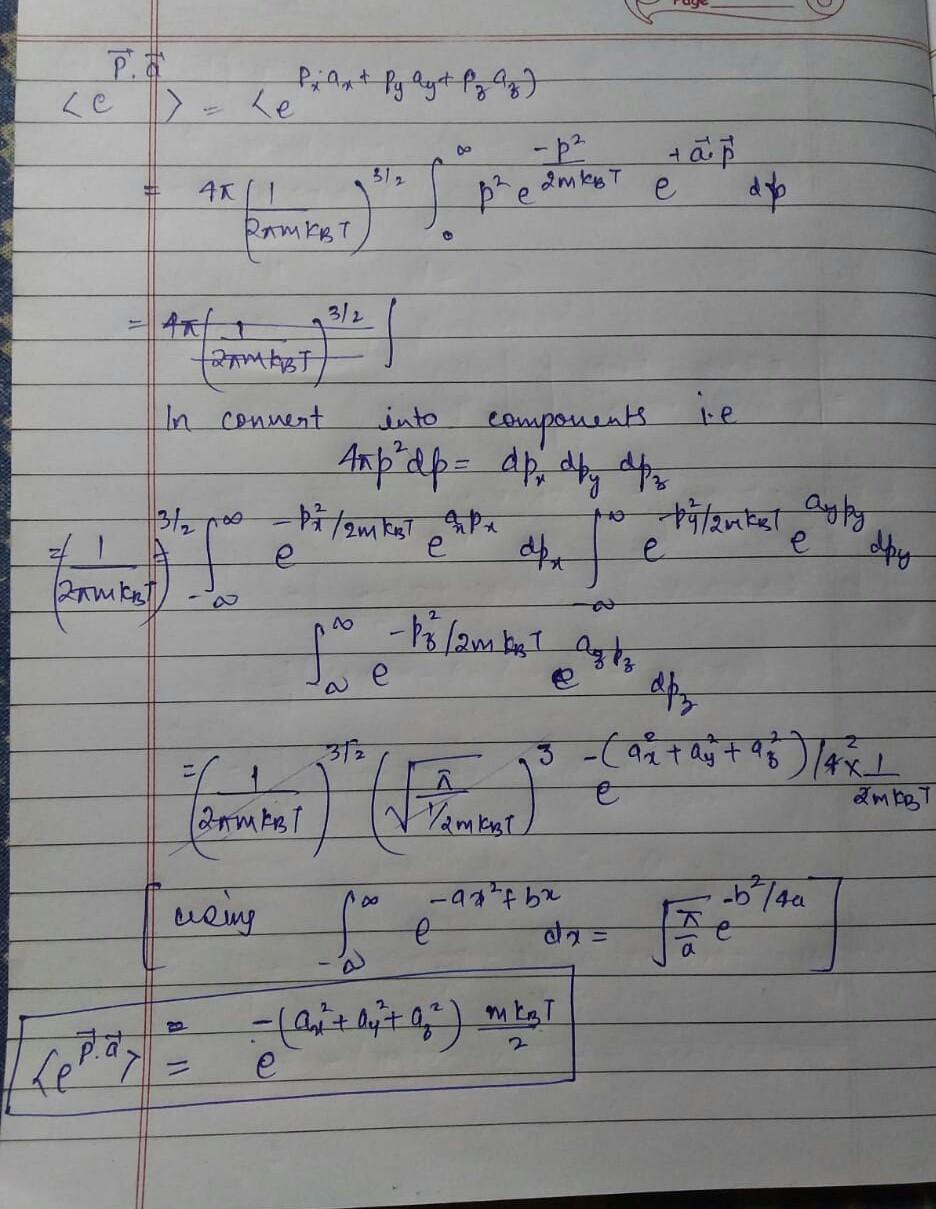 Page
⟨e^{p⃗·a⃗}⟩ = ⟨e^{p_x a_x + p_y a_y + p_z a_z}⟩
= 4π (1/2πmk_BT)^{3/2} ∫_0^∞ p² e^{-p²/2mk_BT} e^{+a⃗·p⃗} dp
= 4π (1/2πmk_BT)^{3/2} ∫
In convert into components i.e
4πp²dp = dp_x dp_y dp_z
= (1/2πmk_BT)^{3/2} ∫_{-∞}^∞ e^{-p_x²/2mk_BT} e^{a_x p_x} dp_x ∫_{-∞}^∞ e^{-p_y²/2mk_BT} e^{a_y p_y} dp_y
∫_{-∞}^∞ e^{-p_z²/2mk_BT} e^{a_z p_z} dp_z
= (1/2πmk_BT)^{3/2} (√(π/(1/2mk_BT)))^3 e^{-(a_x²+a_y²+a_z²)/4×1/2mk_BT}
[using ∫_{-∞}^∞ e^{-ax²+bx} dx = √(π/a) e^{-b²/4a}]
⟨e^{p⃗·a⃗}⟩ = e^{-(a_x²+a_y²+a_z²) mk_BT/2}